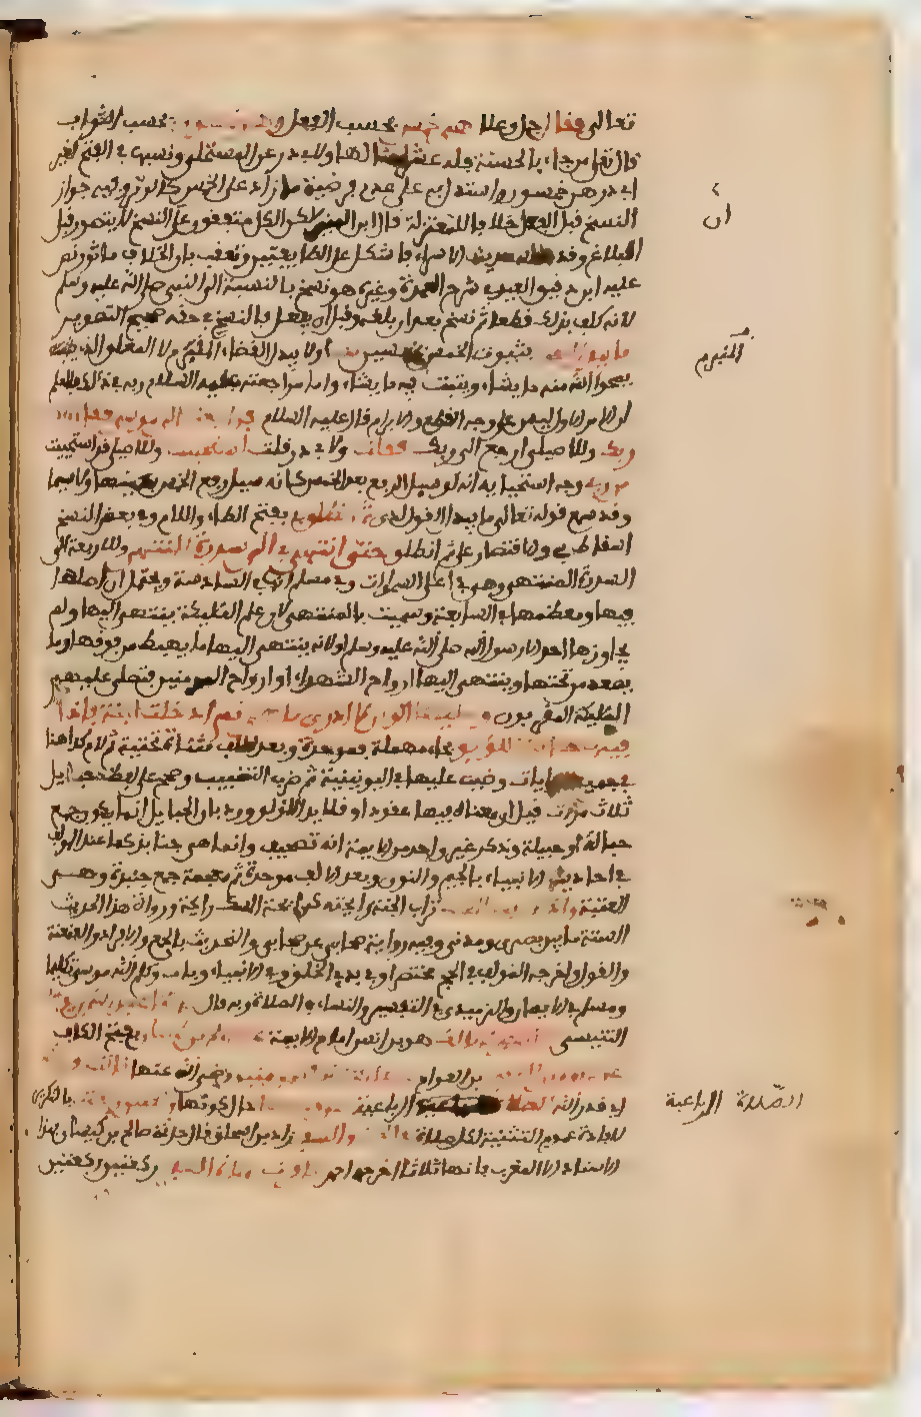 تعالى فقال جل وعلا هي خمس بحسب الفعل وهي خمسون بحسب الثواب
قال تعالى من جاء بالحسنة فله عشر أمثالها ولابي ذر عن المستملي ونسبها في الفتح لغير
ابي ذر هن خمس واستدل به على عدم فرضية ما زاد على الخمس كالوتر وفيه جواز
النسخ قبل الفعل خلافا للمعتزلة قال ابن المنير لكن الكل متفقون على ان النسخ لا يتصور قبل
البلاغ وقد جاء به حديث الاسراء فاشكل على الطائفتين وتعقب بان الخلاف ماثور نص
عليه ابن دقيق العيد في شرح العمدة وغيره هو نسخ بالنسبة الى النبي صلى الله عليه وسلم
لانه كلف بذلك قطعا ثم نسخ بعد ان بلغه وقبل ان يفعل فالنسخ في حقه صحيح التصوير
بثبوت الخمس خمسين اذ لا يبدل القضاء المبرم لا المعلق الذي
يمحو الله منه ما يشاء ويثبت فيه ما يشاء واما مراجعته عليه السلام ربه في ذلك فللعلم
ان الامر الاول ليس على وجه القطع والابرام قال عليه السلام فرجعت الى موسى فقال راجع
ربك وللاصيلي ارجع الى ربك فقلت ولابي ذر قلت استحييت وللاصيلي قد استحييت
من ربي وجه استحيائه انه لو سأل الرفع بعد الخمس لكان كأنه سأل رفع الخمس بعينها ولا سيما
وقد سمع قوله تعالى ما يبدل القول لدي ثم انطلق بي بفتح الطاء واللام وفي بعض النسخ
اسقاط بي والاقتصار على ثم انطلق حتى انتهى بي الى سدرة المنتهى وللاربعة الى
السدرة المنتهى وهي في اعلى السموات وفي مسلم انها في السادسة ويحتمل ان اصلها
فيها ومعظمها في السابعة وسميت بالمنتهى لان علم الملائكة ينتهي اليها ولم
يجاوزها احد الا رسول الله صلى الله عليه وسلم او لانه ينتهي اليها ما يهبط من فوقها وما
يصعد من تحتها وينتهي اليها ارواح الشهداء او ارواح المومنين فتصلي عليهم
الملائكة المقربون وغشيها الوان لا ادري ما هي ثم ادخلت الجنة فاذا
فيها حبايل اللؤلؤ بحاء مهملة فموحدة وبعد الالف مثناة تحتية ثم لام كذا هنا
في جميع الروايات وضبب عليها في اليونينية ثم ضرب على التضبيب وصحح على لفظ حبايل
ثلاث مرات قيل معناه ان فيها عقود او قلايد اللؤلؤ ورد بان الحبايل انما يكون جمع
حبالة او حبيلة وذكر غير واحد من الايمة انه تصحيف وانما هي جنابذ كما عند المولف
في احاديث الانبياء بالجيم والنون وبعد الالف موحدة ثم معجمة جمع جنبذة وهي
القبة واذا ترابها المسك تراب الجنة رايحته كرايحة المسك ورواة هذا الحديث
الستة ما بين بصري ومدني وفيه رواية صحابي عن صحابي والتحديث بالجمع والافراد والعنعنة
والقول واخرجه المولف في الحج مختصرا وفي بدء الخلق وفي الانبياء وباب وكلم الله موسى تكليما
ومسلم في الايمان والترمذي في التفسير والنساءي في الصلاة وبه قال حدثنا عبد الله بن يوسف
التنيسي اخبرنا مالك هو بن انس امام الايمة عن صالح بن كيسان بفتح الكاف
عن عروة بن الزبير بن العوام عن عائشة ام المومنين رضي الله عنها قالت فرض الله
اي قدر الله الصلاة الرباعية حين فرضها حال كونها ركعتين ركعتين بالتكرار
لافادة عموم التثنية لكل صلاة في الحضر والسفر زاد بن اسحاق قال حدثني صالح بن كيسان بهذا
الاسناد الا المغرب فانها ثلاث اخرجه احمد فاقرت صلاة السفر ركعتين ركعتين
ان
المبرم
الصلاة الرباعية